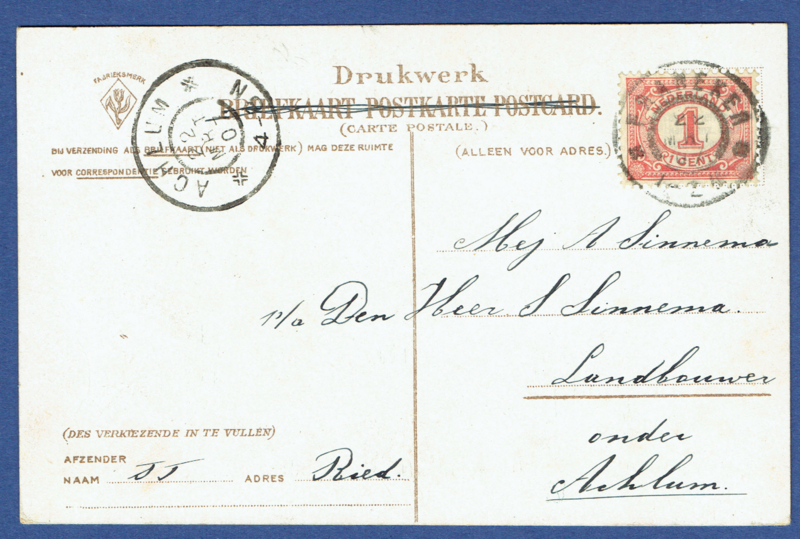 FABRIEKSMERK
Drukwerk
BRIEFKAART POSTKARTE POSTCARD.
(CARTE POSTALE.)
BIJ VERZENDING ALS BRIEFKAART (NIET ALS DRUKWERK) MAG DEZE RUIMTE
VOOR CORRESPONDENTIE GEBRUIKT WORDEN
(ALLEEN VOOR ADRES.)
ACHLUM
NEDERLAND
1
1 CENT
FRANEKER
Mej A Sinnema
p/a Den Heer S Sinnema.
Landbouwer
onder
Achlum.
(DES VERKIEZENDE IN TE VULLEN)
AFZENDER
NAAM TT ADRES Ried.